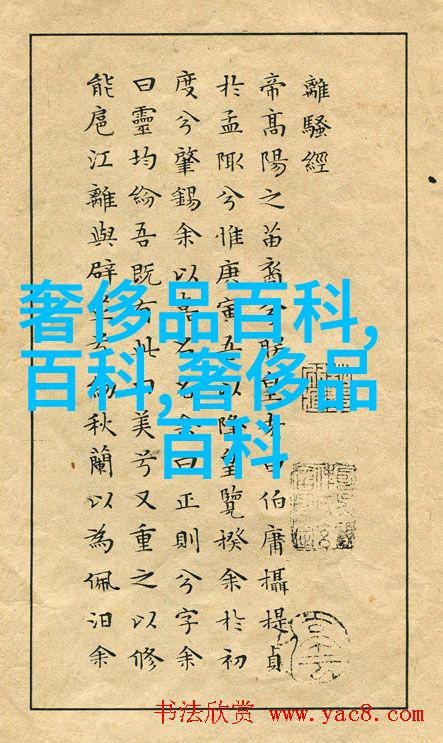 離騷經
帝高陽之苗裔兮朕皇考曰伯庸攝提貞
於孟陬兮惟庚寅吾以降皇覽揆余於初
度兮肇錫余以名余曰正則兮字余
曰靈均紛吾既有此美兮又重之以修
能扈江離與辟秋蘭以為佩汨余
奢侈品百科,
百科,奢侈品
百科
书法欣赏 www.yac8.com